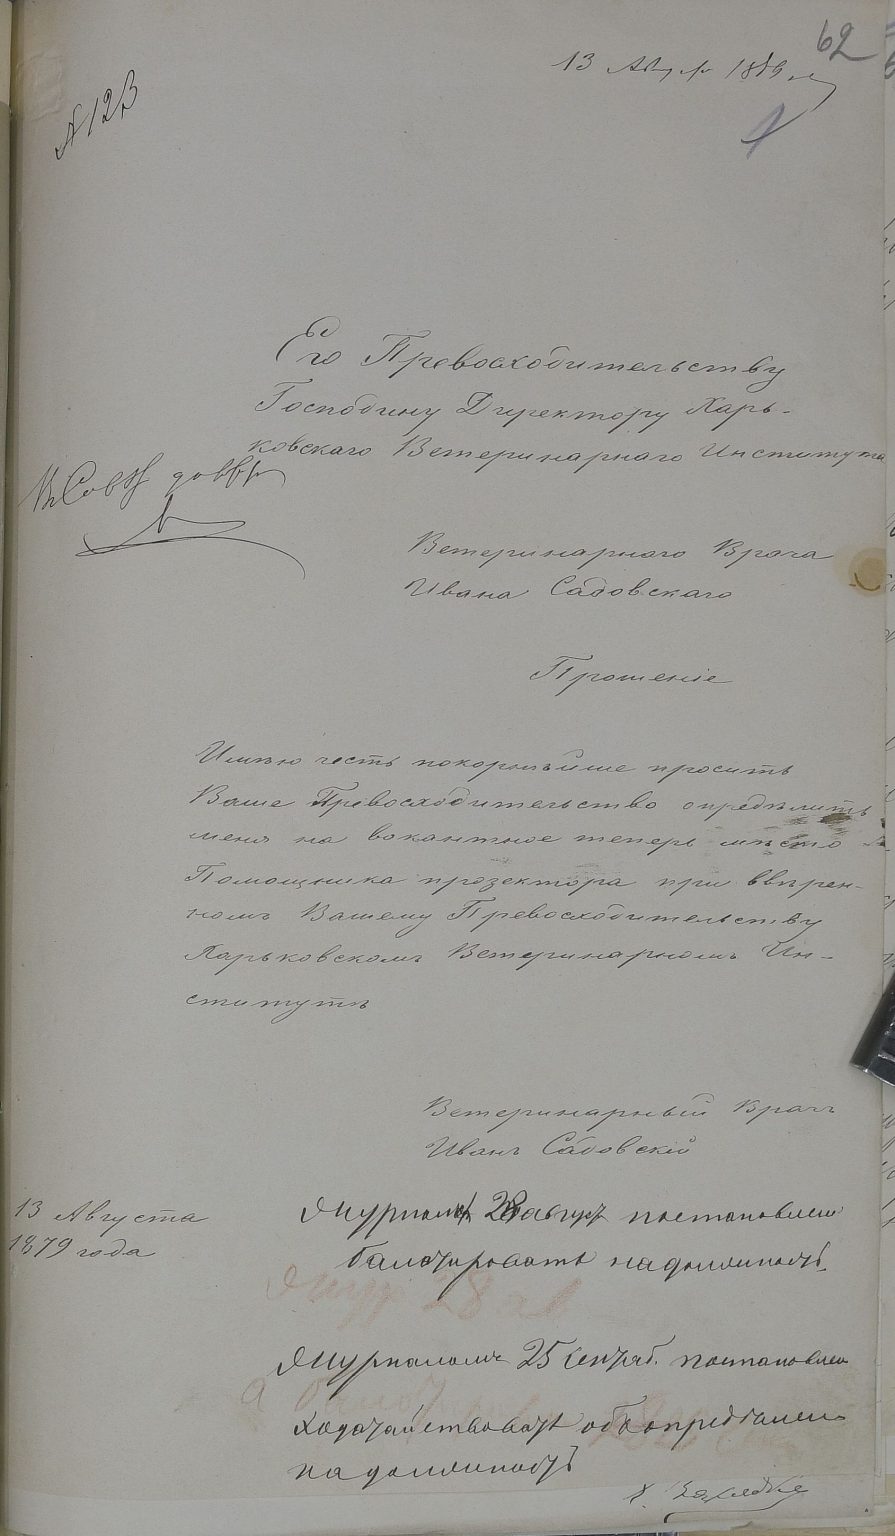 62
13 Авг. 1879 г.
№ 123
Его Превосходительству
Господину Директору Харь-
ковскаго Ветеринарнаго Института
Въ Совѣтъ
Ветеринарнаго Врача
Ивана Садовскаго
Прошеніе
Имѣю честь покорнѣйше просить
Ваше Превосходительство опредѣлить
меня на вокантное теперь мѣсто
Помощника прозектора при ввѣрен-
номъ Вашему Превосходительству
Харьковскомъ Ветеринарномъ Ин-
ститутѣ
Ветеринарный Врачъ
Иванъ Садовскій
13 Августа
1879 года
Журналомъ 28 август постановлено
балотировать на должность.
Жур 28 ав
Журналомъ 25 Сентяб. постановлено
ходатайствовать объ опредѣленіи
на должность